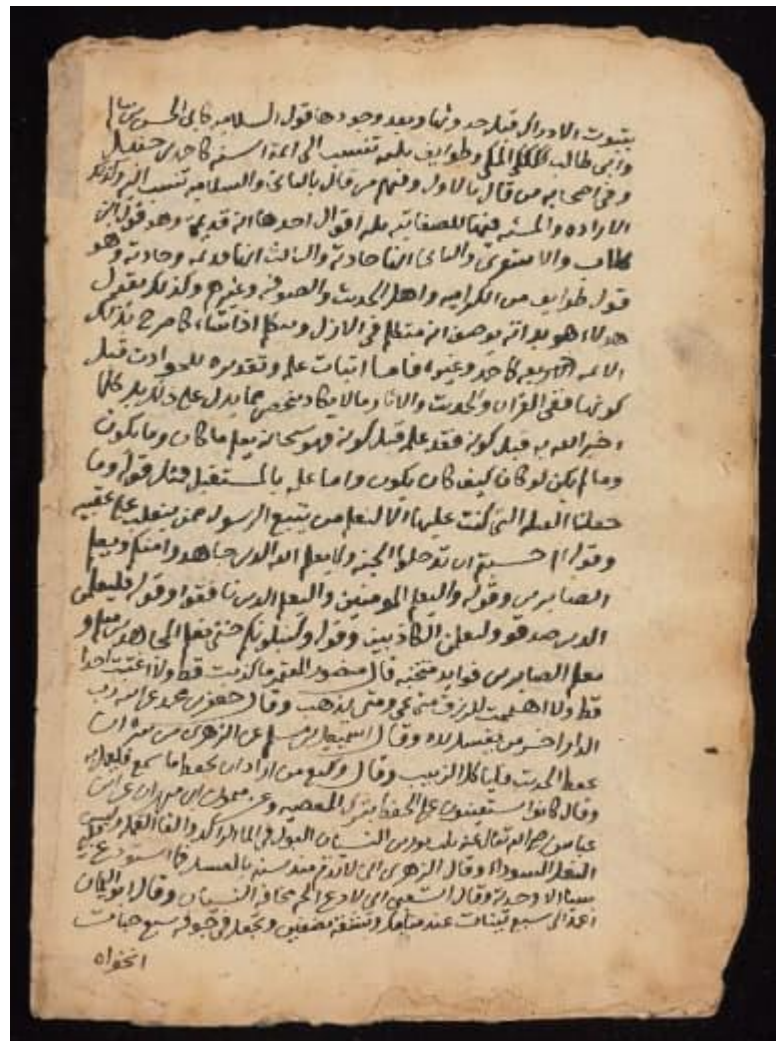 بثبوت الادراك قبل حدوثها وبعد وجودها قول السالميه كابى الحسن بن سالم
وابى طالب المكى وطوايف تنتسب الى ايمة السنه كاحمد بن حنبل
وفى اصحابه من قال بالاول ومنهم من قال بالثانى والسالميه تنتسب اليه وكذلك
الاراده والمشيه فيها للصفاتيه ثلثه اقوال احدها انه قديمة وهو قول ابن
كلاب والاشعرى والثانى انها حادثه والثالث انها قديمه وحادثه وهو
قول طوايف من الكراميه واهل الحديث والصوفيه وغيرهم وكذلك يقول
هولا هو بذاته يوصف انه متكلم فى الازل ويتكلم اذا شاء كما صرح بذلك
الايمه كاحمد وغيره فاما اثبات علمه وتقديره للحوادث قبل
كونها ففى القران والحديث والاثار ما لا يكاد ينحصر مما يدل على ذلك بل كلما
اخبر الله به قبل كونه فقد علمه قبل كونه فهو سبحانه يعلم ما كان وما يكون
وما لم يكن لو كان كيف كان يكون واما علمه بالمستقبل فمثل قوله وما
جعلنا القبلة التى كنت عليها الا لنعلم من يتبع الرسول ممن ينقلب على عقبيه
وقوله ام حسبتم ان تدخلوا الجنه ولما يعلم الله الذين جاهدوا منكم ويعلم
الصابرين وقوله وليعلم المومنين وليعلم الذين نافقوا وقوله فليعلمن
الذين صدقوا وليعلمن الكاذبين وقوله ولنبلونكم حتى نعلم المجاهدين منكم و
نعلم الصابرين فوايد منتخبه قال منصور الفقيه ما كذبت قط ولا اغتبت احدا
قط ولا اهتممت للرزق متى يجى ومتى يذهب وقال جعفر بن محمد
الدار اخر من يفسد بلاه وقال اسمعيل بن مسلم عن الزهرى من سره ان
يحفظ الحديث فلياكل الزبيب وقال وكيع من اراد ان يحفظ ما سمع فليعمل به
وقال كانوا يستعينون على الحفظ بترك المعصيه وعن ميمون بن مهران عن ابن
عباس رضى الله تعالى عنه ثلث يورثن النسيان البول فى الما الراكد والقا القمله ولبس
النعل السوداء وقال الزهرى
وقال الشعبى انى لادع اللحم مخافة النسيان وقال ابو اليمان
اعمد الى سبع تينات عند منامك وتشقه نصفين وتجعل فى جوفه سبع حبات
انخواه